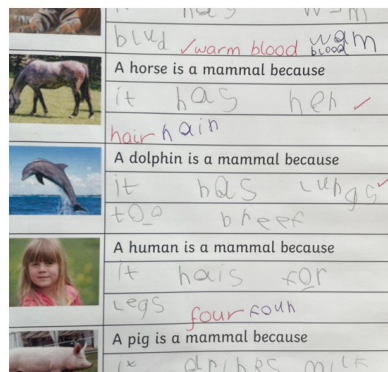 it has wam
blud ✓warm blood wam blood
A horse is a mammal because
it has heh ✓
hair hain
A dolphin is a mammal because
it has lungs ✓
too breef
A human is a mammal because
it hais for
legs four four
A pig is a mammal because
it drihes milk